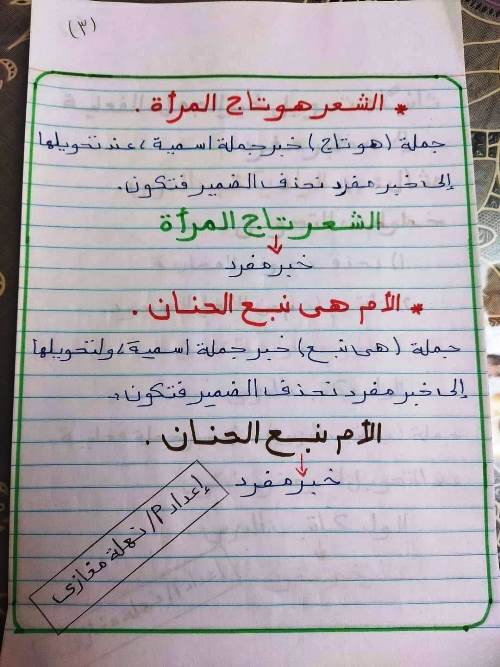 (٣)
* الشعر هو تاج المرأة .
جملة (هو تاج) خبر جملة اسمية، عند تحويلها
إلى خبر مفرد نحذف الضمير فتكون.
الشعر تاج المرأة
خبر مفرد
* الأم هى نبع الحنان .
جملة (هى نبع) خبر جملة اسمية، ولتحويلها
إلى خبر مفرد نحذف الضمير فتكون.
الأم نبع الحنان .
خبر مفرد
إعداد م/ نهلة مغازى